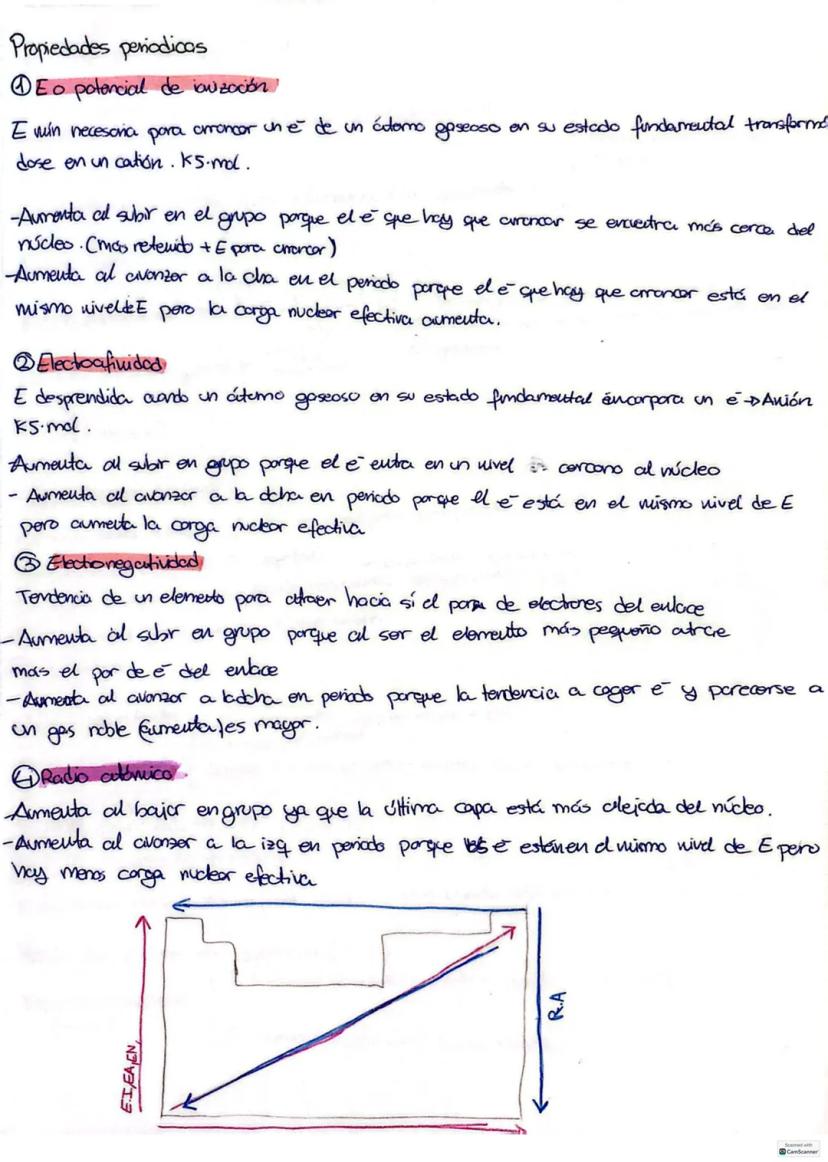 Propiedades periodicas
① E o potencial de ionización
E mín necesaria para arrancar un e⁻ de un átomo gaseoso en su estado fundamental transformán
dose en un catión. KJ·mol.
-Aumenta al subir en el grupo porque el e⁻ que hay que arrancar se encuentra más cerca del
núcleo. (más retenido + E para arrancar)
-Aumenta al avanzar a la dha en el periodo porque el e⁻ que hay que arrancar está en el
mismo nivel de E pero la carga nuclear efectiva aumenta.
② Electroafinidad
E desprendida cuando un átomo gaseoso en su estado fundamental incorpora un e⁻ → Anión
KJ·mol.
Aumenta al subir en grupo porque el e⁻ entra en un nivel cercano al núcleo
- Aumenta al avanzar a la dcha en periodo porque el e⁻ está en el mismo nivel de E
pero aumenta la carga nuclear efectiva
③ Electronegatividad
Tendencia de un elemento para atraer hacia sí el par de electrones del enlace
- Aumenta al subir en grupo porque al ser el elemento más pequeño atrae
mas el par de e⁻ del enlace
- Aumenta al avanzar a la dcha en periodo porque la tendencia a coger e⁻ y parecerse a
un gas noble (aumenta) es mayor.
④ Radio atómico
-Aumenta al bajar en grupo ya que la última capa está más alejada del núcleo.
-Aumenta al avanzar a la izq en periodo porque los e⁻ están en el mismo nivel de E pero
hay menos carga nuclear efectiva
E.I, EA, EN,
R.A
Scanned with
CamScanner